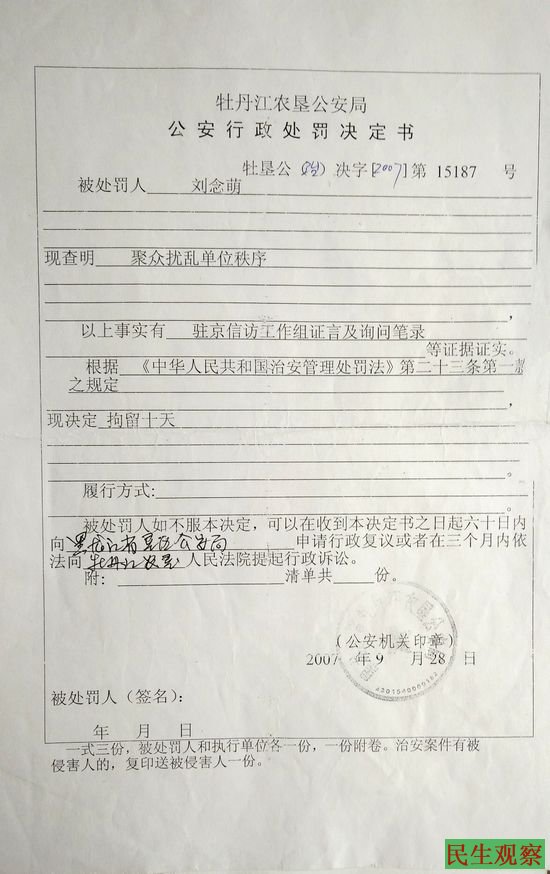 牡丹江农垦公安局
公安行政处罚决定书
牡垦公( )决字[2007]第 15187 号
被处罚人 刘念萌
现查明 聚众扰乱单位秩序
，
以上事实有 驻京信访工作组证言及询问笔录
等证据证实。
根据 《中华人民共和国治安管理处罚法》第二十三条第一
之规定
，
现决定 拘留十天
。
履行方式:
。
被处罚人如不服本决定，可以在收到本决定书之日起六十日内
向 黑龙江省垦区公安局 申请行政复议或者在三个月内依
法向 牡丹江农垦 人民法院提起行政诉讼。
附: 清单共 份。
(公安机关印章)
2007 年 9 月 28 日
被处罚人（签名）:
年 月 日
一式三份，被处罚人和执行单位各一份，一份附卷。治安案件有被
侵害人的，复印送被侵害人一份。
民生观察